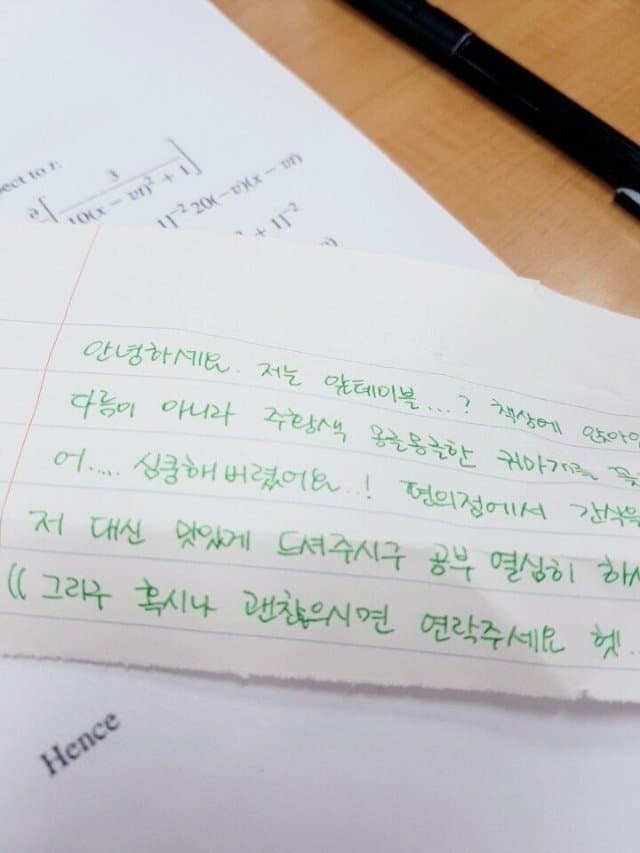 ect to t:
∂[3 / 10(x − vt)² + 1]
1]⁻² 20(−v)(x − vt)
+ 1]⁻²
안녕하세요. 저는 앞테이블...? 책상에
다름이 아니라 주황색 몽글몽글한 귀마개를
어..... 심쿵해버렸어요..! 편의점에서 간식을
저 대신 맛있게 드셔주시구 공부 열심히
(( 그리구 혹시나 괜찮으시면 연락주세요 헷..
Hence